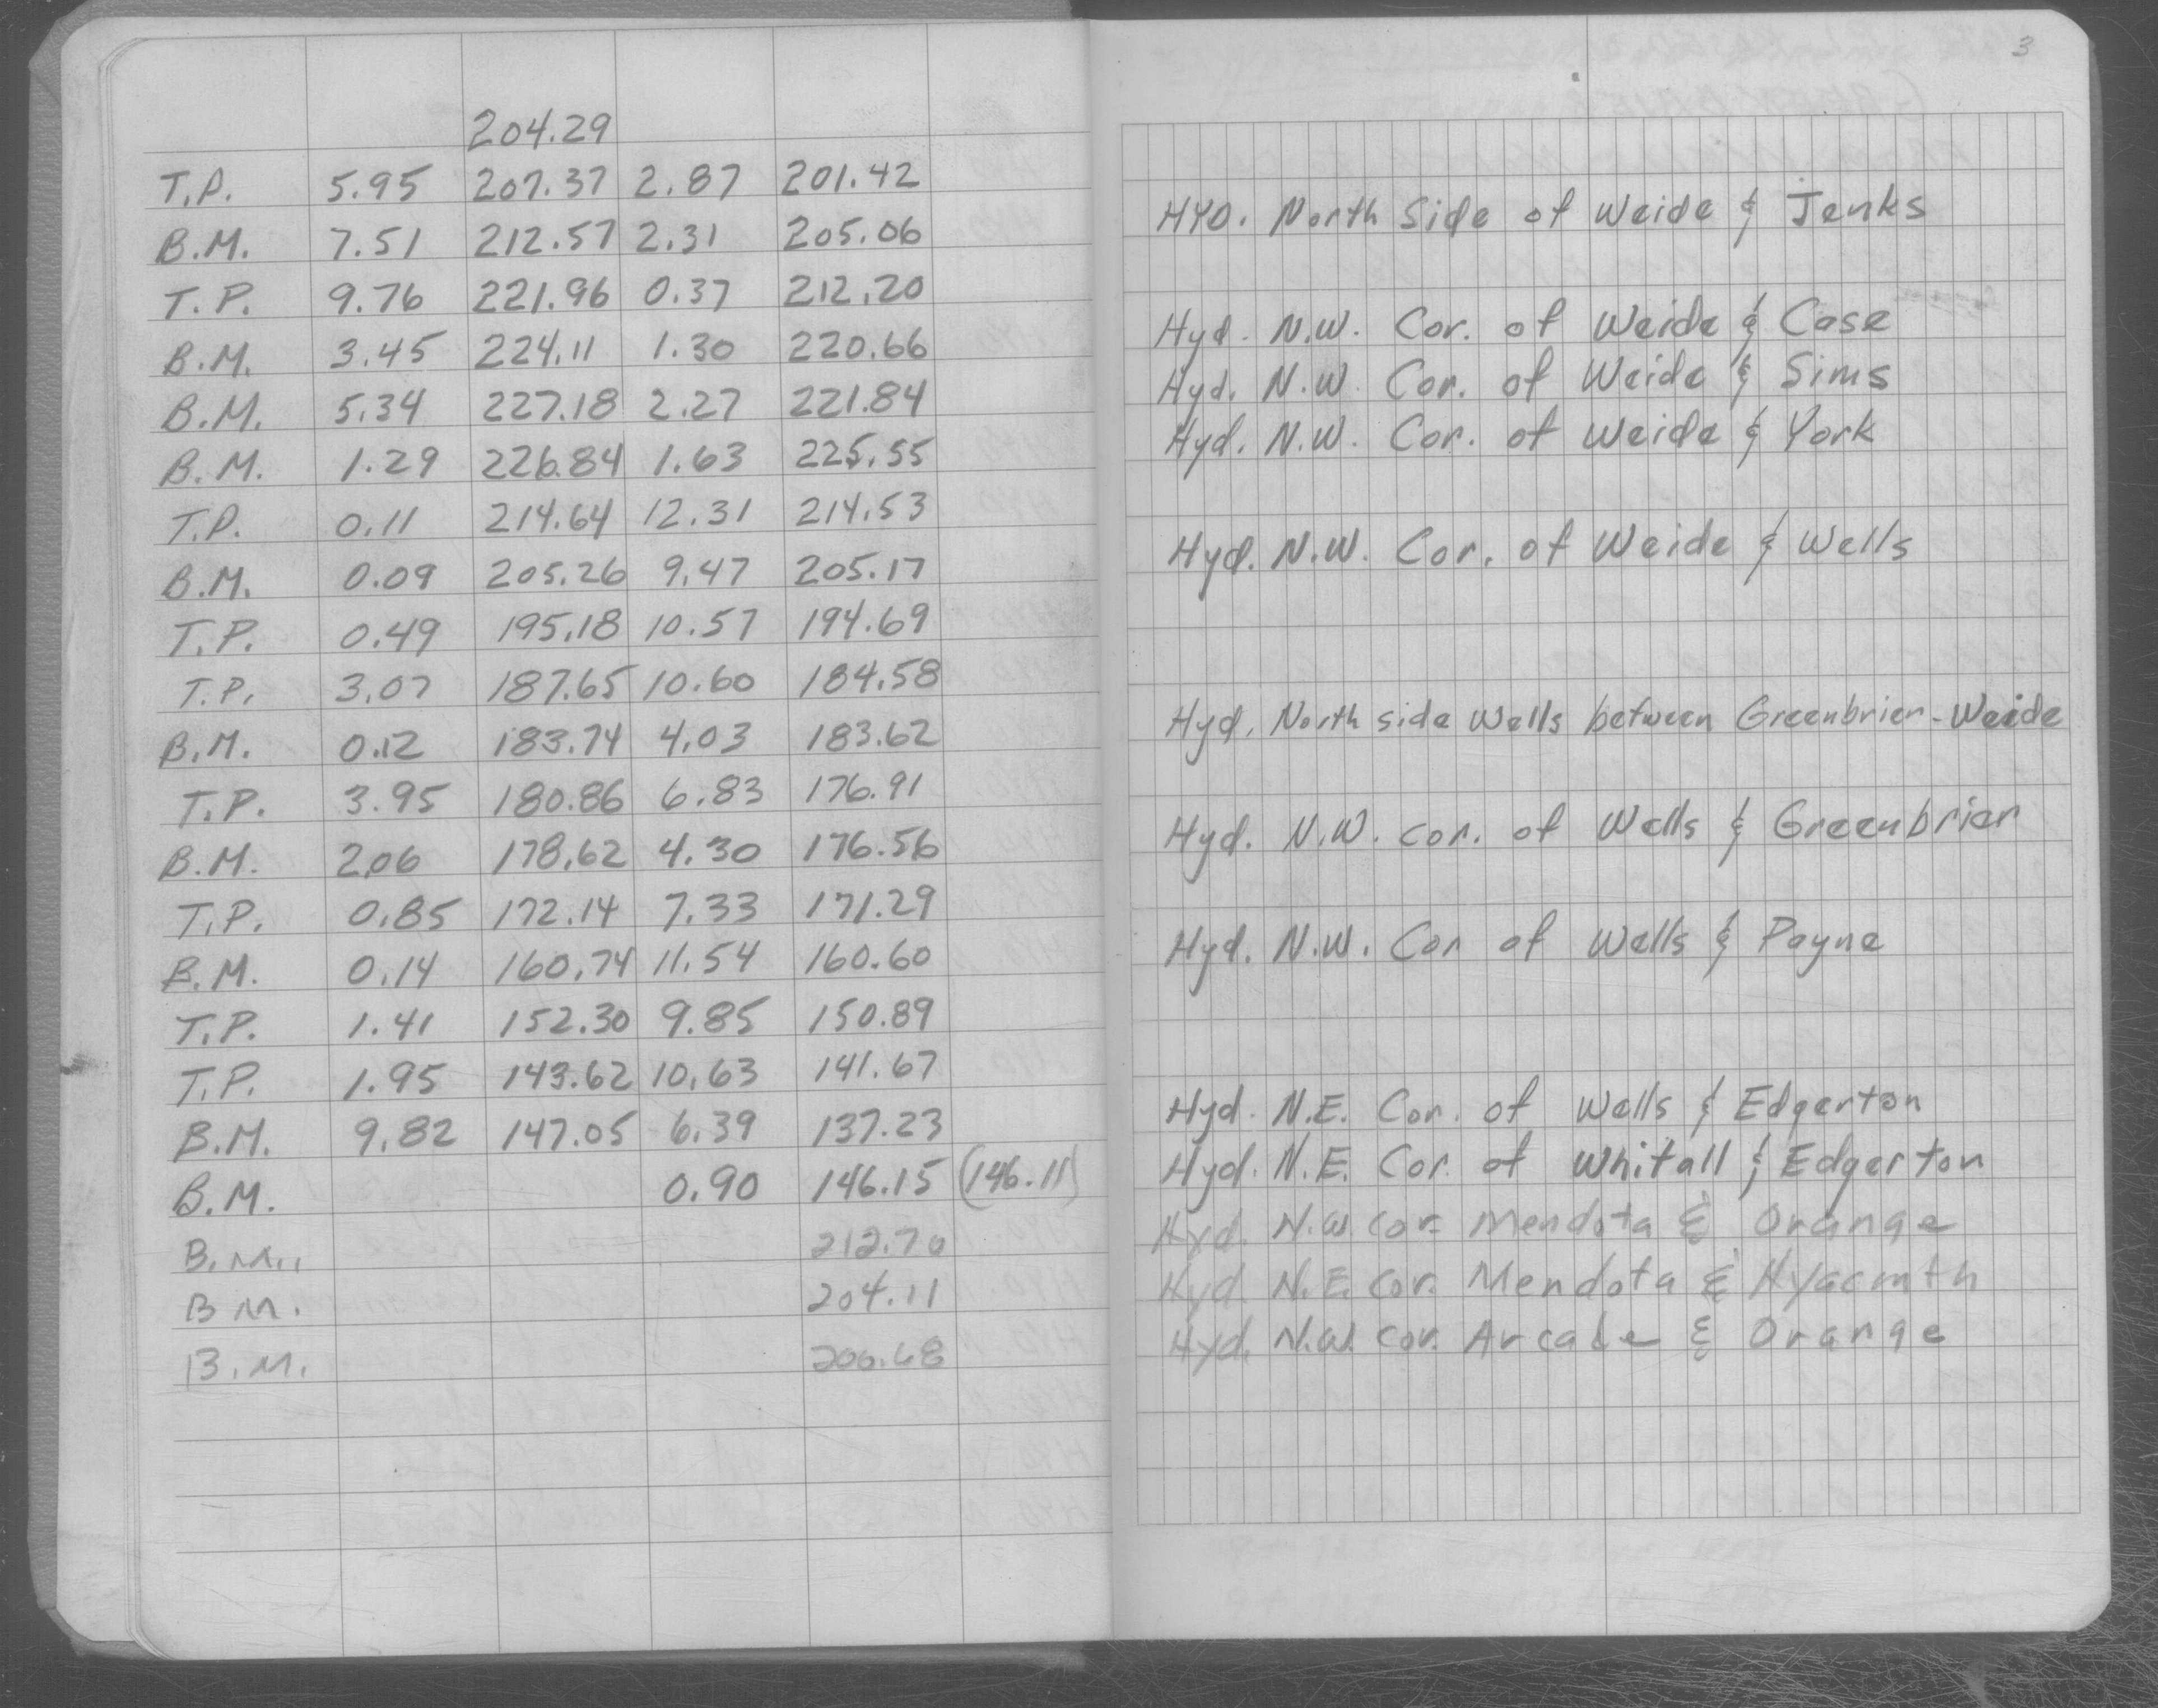 204.29
T.P. 5.95 207.37 2.87 201.42
B.M. 7.51 212.57 2.31 205.06
T.P. 9.76 221.96 0.37 212.20
B.M. 3.45 224.11 1.30 220.66
B.M. 5.34 227.18 2.27 221.84
B.M. 1.29 226.84 1.63 225.55
T.P. 0.11 214.64 12.31 214.53
B.M. 0.09 205.26 9.47 205.17
T.P. 0.49 195.18 10.57 194.69
T.P. 3.07 187.65 10.60 184.58
B.M. 0.12 183.74 4.03 183.62
T.P. 3.95 180.86 6.83 176.91
B.M. 2.06 178.62 4.30 176.56
T.P. 0.85 172.14 7.33 171.29
B.M. 0.14 160.74 11.54 160.60
T.P. 1.41 152.30 9.85 150.89
T.P. 1.95 143.62 10.63 141.67
B.M. 9.82 147.05 6.39 137.23
B.M. 0.90 146.15 (146.11)
B.M. 212.70
B.M. 204.11
B.M. 206.68
3
HYD. North Side of Weide & Jenks
Hyd. N.W. Cor. of Weide & Case
Hyd. N.W. Cor. of Weide & Sims
Hyd. N.W. Cor. of Weide & York
Hyd. N.W. Cor. of Weide & Wells
Hyd. North side Wells between Greenbrier-Weide
Hyd. N.W. cor. of Wells & Greenbrier
Hyd. N.W. Cor of Wells & Payne
Hyd. N.E. Cor. of Wells & Edgerton
Hyd. N.E. Cor. of Whitall & Edgerton
Hyd. N.W. Cor. Mendota & Orange
Hyd. N.E. Cor. Mendota & Hyacinth
Hyd. N.W. Cor. Arcade & Orange